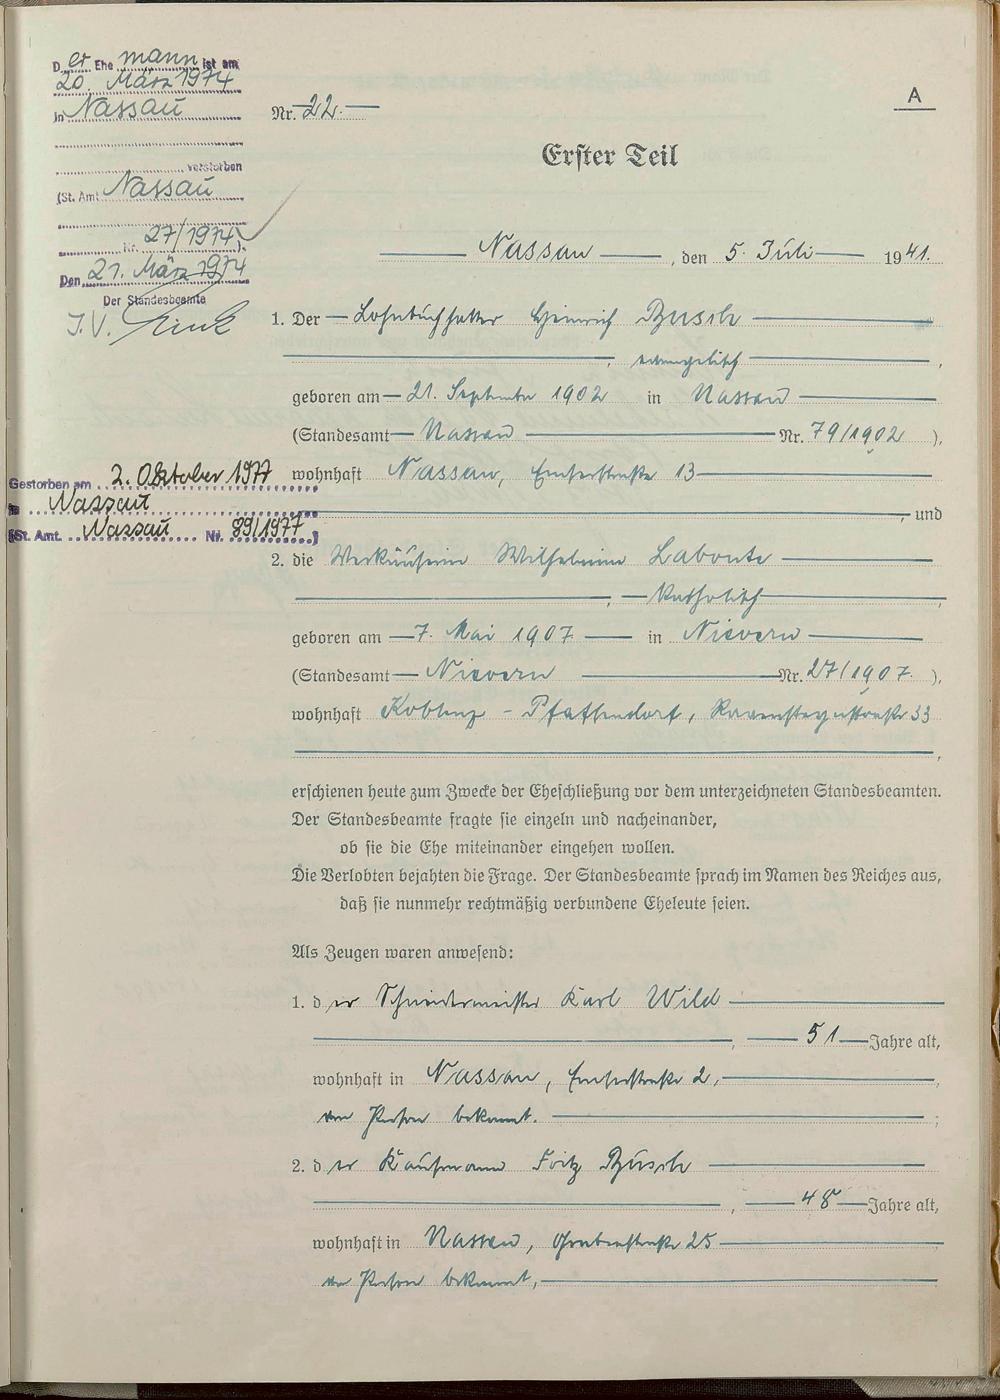 Der Ehemann ist am
20. März 1974
in Nassau
verstorben
(St. Amt Nassau
Nr. 27/1974).
Den 21. März 1974
Der Standesbeamte
I.V.
Gestorben am 2. Oktober 1977
in Nassau
(St. Amt. Nassau Nr. 89/1977)
A
Nr. 22.
Erster Teil
Nassau, den 5. Juli 1941.
1. Der Lohnbuchhalter Heinrich Busch
, evangelisch,
geboren am 21. September 1902 in Nassau
(Standesamt Nassau Nr. 79/1902),
wohnhaft Nassau, Emserstraße 13
, und
2. die Verkäuferin Wilhelmine Labonte
, katholisch,
geboren am 7. Mai 1907 in Nievern
(Standesamt Nievern Nr. 27/1907.),
wohnhaft Koblenz - Pfaffendorf, Ravensteynstraße 33
,
erschienen heute zum Zwecke der Eheschließung vor dem unterzeichneten Standesbeamten.
Der Standesbeamte fragte sie einzeln und nacheinander,
ob sie die Ehe miteinander eingehen wollen.
Die Verlobten bejahten die Frage. Der Standesbeamte sprach im Namen des Reiches aus,
daß sie nunmehr rechtmäßig verbundene Eheleute seien.
Als Zeugen waren anwesend:
1. der Schneidermeister Karl Wild
, 51 Jahre alt,
wohnhaft in Nassau, Emserstraße 2,
von Person bekannt. ;
2. der Kaufmann Fritz Busch
, 48 Jahre alt,
wohnhaft in Nassau, Grabenstraße 25
von Person bekannt,